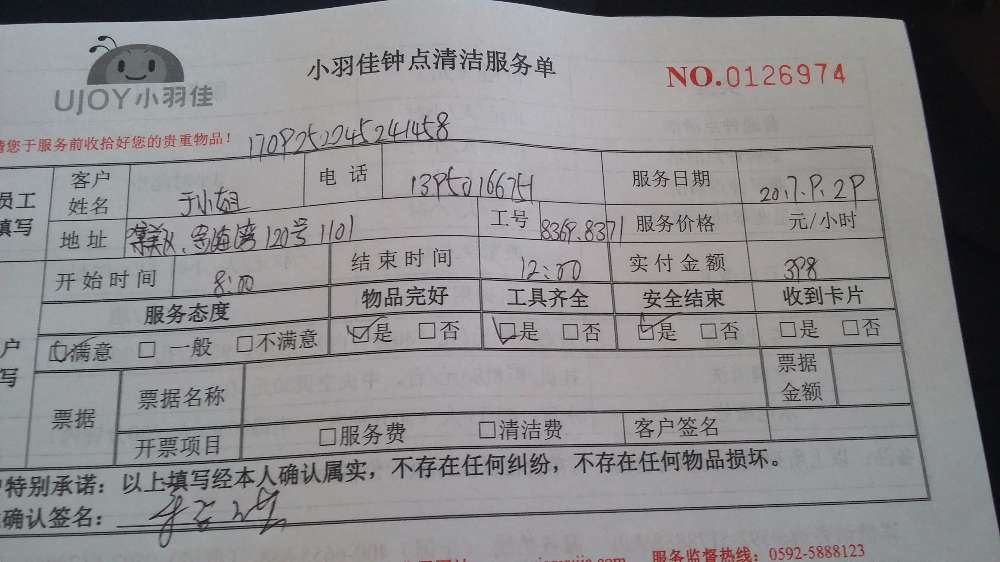 UJOY小羽佳
小羽佳钟点清洁服务单
NO.0126974
请您于服务前收拾好您的贵重物品！
员工 填写
客户姓名 于小姐 电话 服务日期
地址 120号1101 工号 8369.8371 服务价格 元/小时
开始时间 8:00 结束时间 12:00 实付金额 398
服务态度 物品完好 工具齐全 安全结束 收到卡片
☑满意 □一般 □不满意 ☑是 □否 ☑是 □否 ☑是 □否 □是 □否
票据 票据名称 票据金额
开票项目 □服务费 □清洁费 客户签名
特别承诺：以上填写经本人确认属实，不存在任何纠纷，不存在任何物品损坏。
确认签名：
服务监督热线：0592-5888123